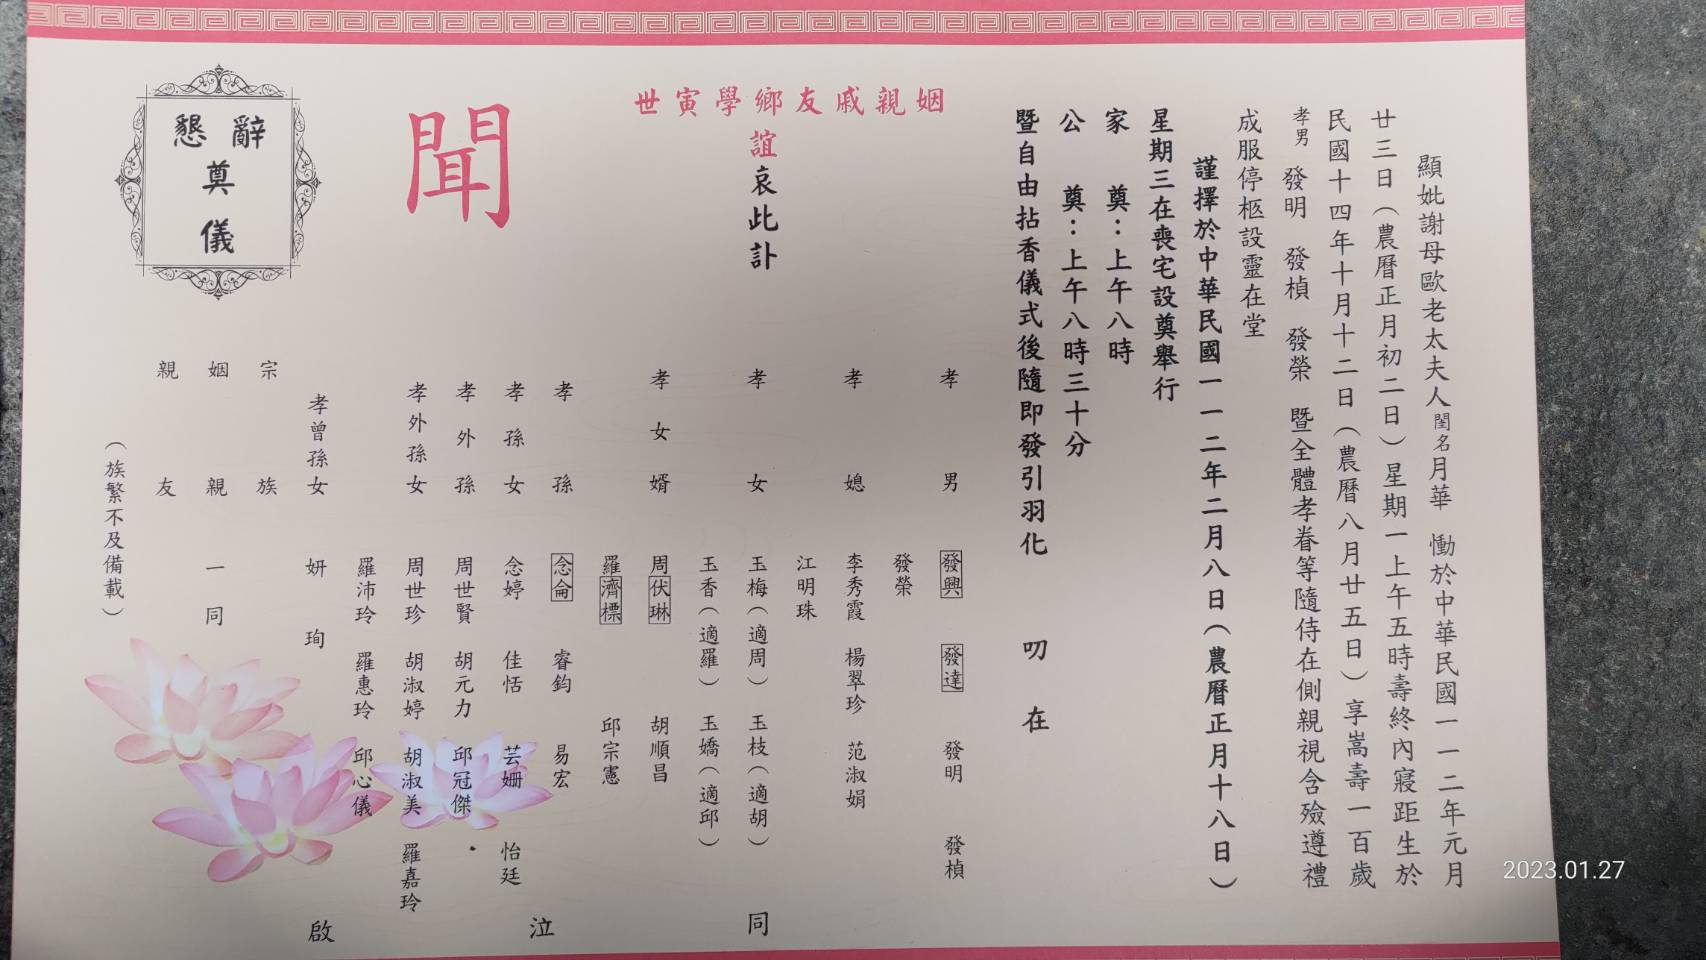 顯妣謝母歐老太夫人閨名月華 慟於中華民國一一二年元月
廿三日(農曆正月初二日)星期一上午五時壽終內寢距生於
民國十四年十月十二日(農曆八月廿五日)享嵩壽一百歲
孝男 發明 發楨 發榮 暨全體孝眷等隨侍在側親視含殮遵禮
成服停柩設靈在堂
謹擇於中華民國一一二年二月八日(農曆正月十八日)
星期三在喪宅設奠舉行
家 奠:上午八時
公 奠:上午八時三十分
暨自由拈香儀式後隨即發引羽化 叨在
姻親戚友鄉學寅世
誼哀此訃
聞
孝男 發興 發達 發明 發楨
發榮
孝媳 李秀霞 楊翠珍 范淑娟
江明珠
孝女 玉梅(適周) 玉枝(適胡)
玉香(適羅) 玉嬌(適邱)
孝女婿 周伏琳 胡順昌
羅濟標 邱宗憲
孝孫 念侖 睿鈞 易宏
孝孫女 念婷 佳恬 芸姍 怡廷
孝外孫 周世賢 胡元力 邱冠傑
孝外孫女 周世珍 胡淑婷 胡淑美 羅嘉玲
羅沛玲 羅惠玲 邱心儀
孝曾孫女 妍珣
同泣啟
宗族
姻親一同
親友
(族繁不及備載)
懇辭
奠
儀
2023.01.27